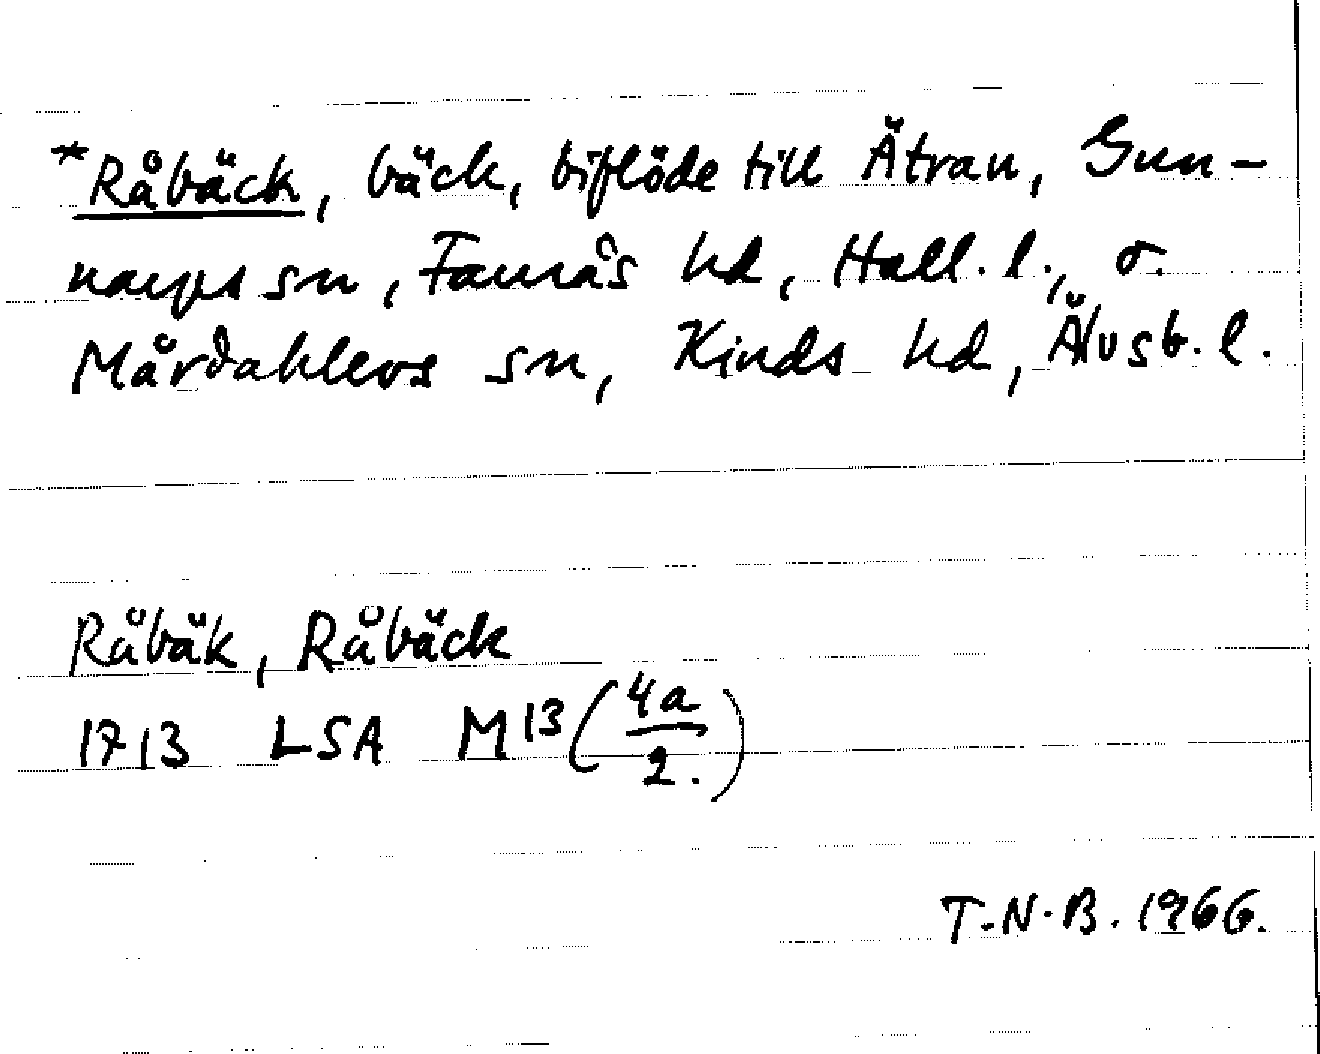 *Råbäck, bäck, biflöde till Ätran, Gun-
narps sn, Faurås hd, Hall. l., o.
Mårdaklevs sn, Kinds hd, Älvsb. l.
Råbäk, Råbäck
1713 LSA M13 (4a/2.)
T.N.B. 1966.